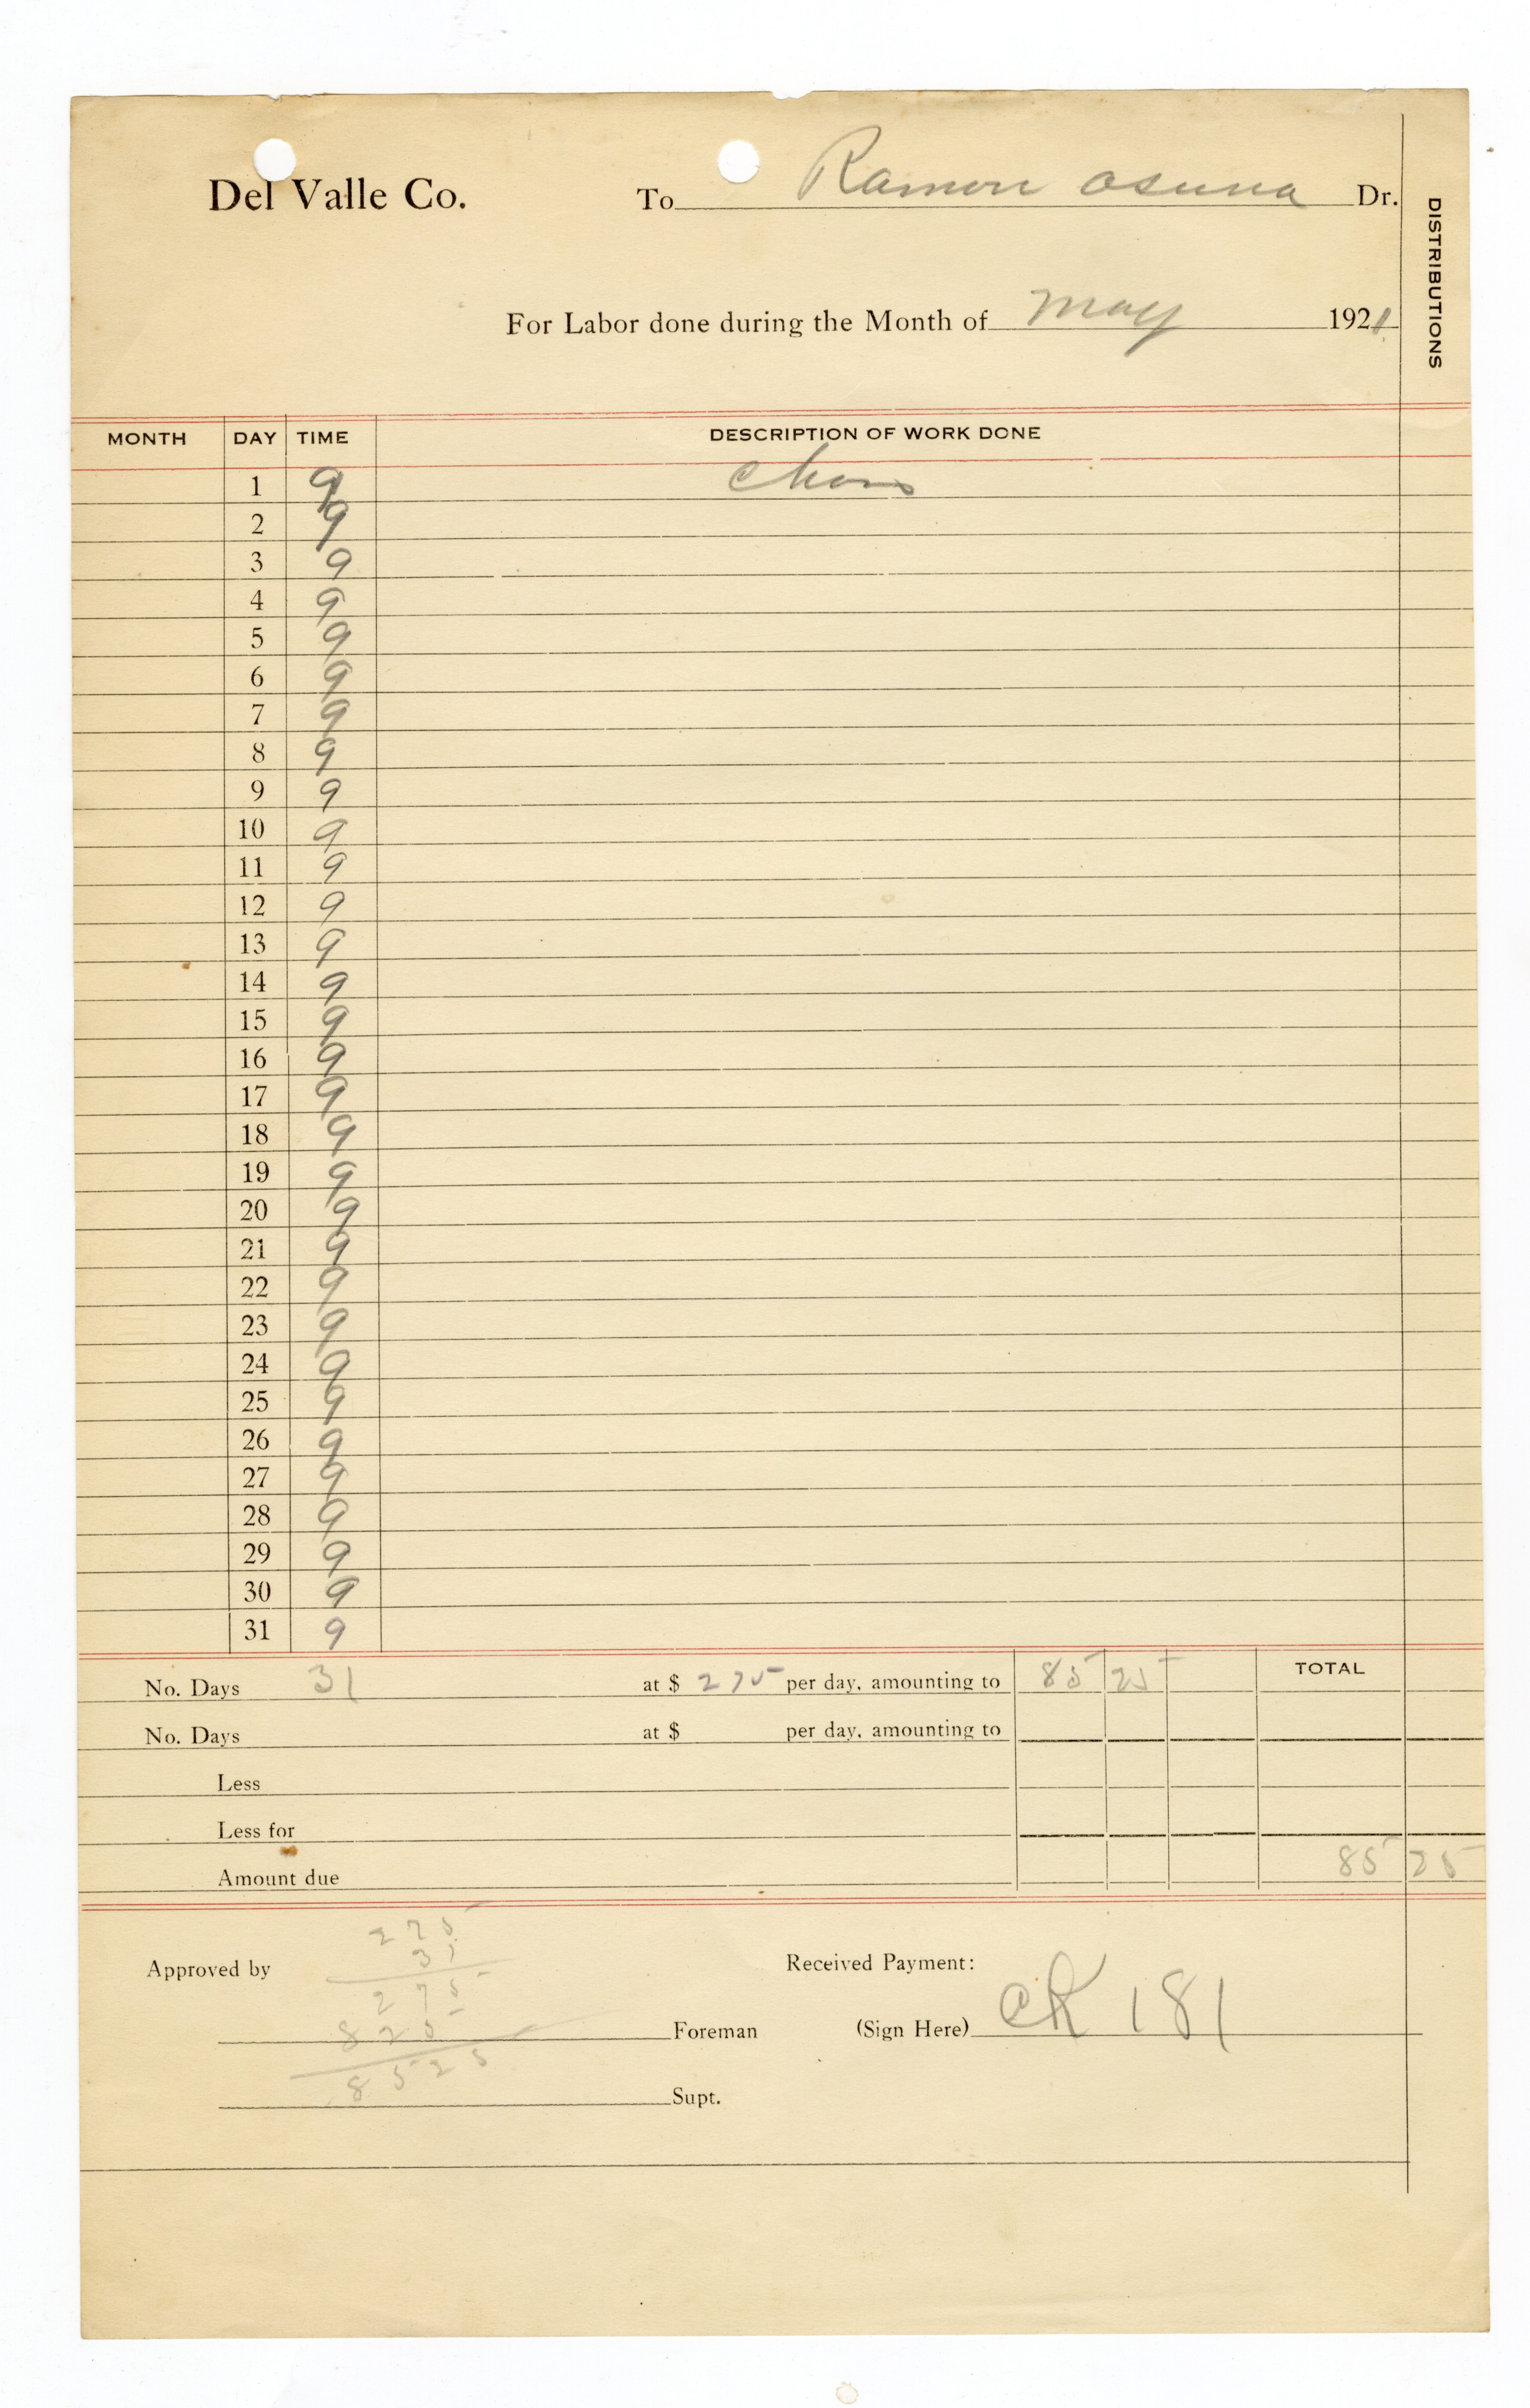 Del Valle Co. To Ramon Osuna Dr.
DISTRIBUTIONS
For Labor done during the Month of May 1921
MONTH DAY TIME DESCRIPTION OF WORK DONE
1 9 Chores
2 9
3 9
4 9
5 9
6 9
7 9
8 9
9 9
10 9
11 9
12 9
13 9
14 9
15 9
16 9
17 9
18 9
19 9
20 9
21 9
22 9
23 9
24 9
25 9
26 9
27 9
28 9
29 9
30 9
31 9
TOTAL
No. Days 31 at $ 275 per day, amounting to 85 25
No. Days at $ per day, amounting to
Less
Less for
Amount due 85 25
275
31
275
825
8525
Approved by Received Payment:
Foreman (Sign Here) CK 181
Supt.